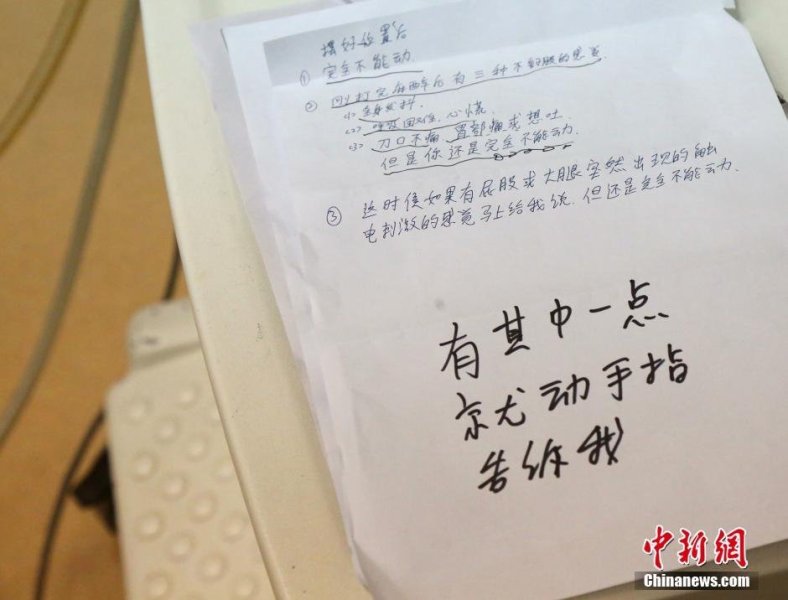 摆好位置后
① 完全不能动
② 刚打完麻醉后有三种不舒服的感觉
(1) 全身发抖.
(2) 呼吸困难, 心慌.
(3) 刀口不痛, 胃部痛或想吐
但是你还是完全不能动.
③ 这时候如果有屁股或大腿突然出现的触
电刺激的感觉马上给我说. 但还是完全不能动.
有其中一点
就动手指
告诉我
中新网
Chinanews.com